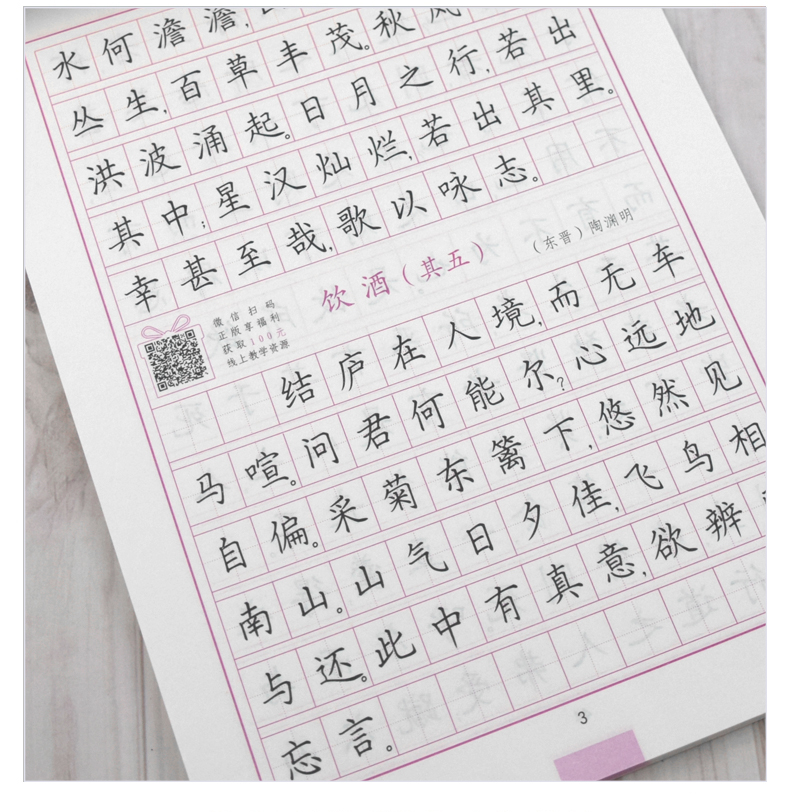 水何澹澹,
丰茂。秋风
丛生,百草
洪波涌起。日月之行,若出
其中;星汉灿烂,若出其里。
幸甚至哉,歌以咏志。
饮酒(其五)
(东晋)陶渊明
微信扫码
正版享福利
获取100元
线上教学资源
结庐在人境,而无车
马喧。问君何能尔?心远地
自偏。采菊东篱下,悠然见
南山。山气日夕佳,飞鸟相
与还。此中有真意,欲辨
忘言。
3